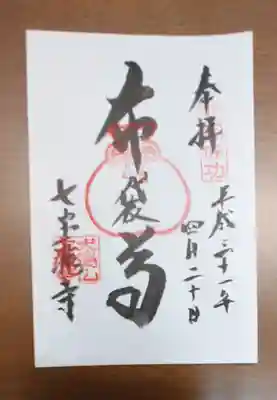 奉拝
平成三十一年
四月二十日
布袋尊
七宝瀧寺